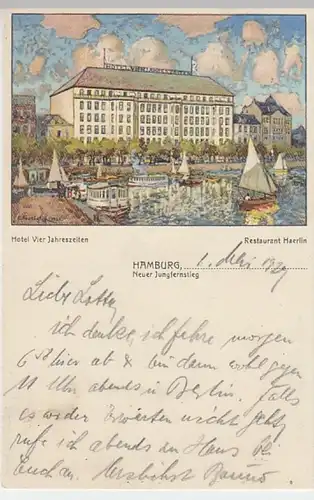 HOTEL VIER JAHRESZEITEN
Hotel Vier Jahreszeiten
Restaurant Haerlin
HAMBURG, 1. Mai 1929
Neuer Jungfernstieg
ich denke, ich fahre morgen
hier ab & bin dann wohl gegen
11 Uhr abends in Berlin. Falls
es wider Erwarten nicht geht,
rufe ich abends an Haus
Euch an. Herzlichst